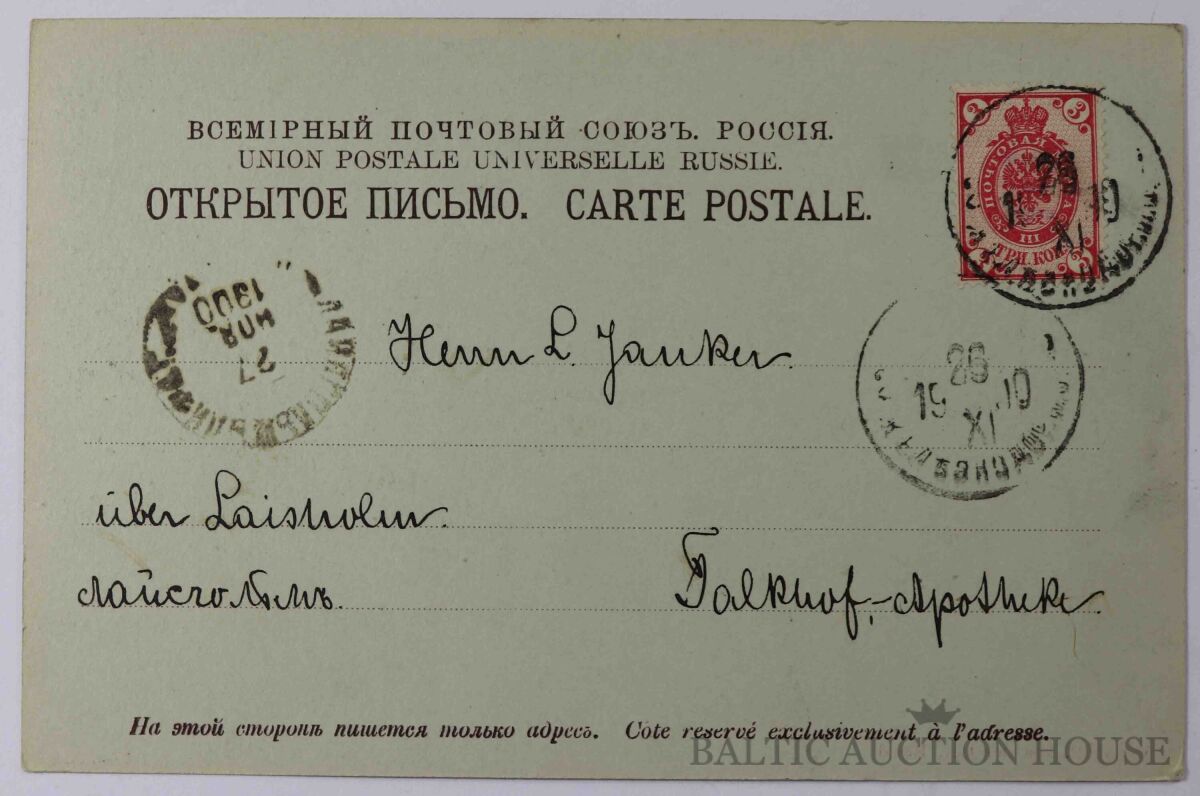 ВСЕМІРНЫЙ ПОЧТОВЫЙ СОЮЗЪ. РОССІЯ.
UNION POSTALE UNIVERSELLE RUSSIE.
ОТКРЫТОЕ ПИСЬМО. CARTE POSTALE.
3 3
ПОЧТОВАЯ
III
ТРИ. КОП.
26
XI
27
НОЯ.
1900
Herrn L. Janker.
26
XI
über Laisholm.
Лайсгольмъ.
Talkhof,-Apotheke.
На этой сторонѣ пишется только адресъ. Côte reservé exclusivement à l'adresse.
BALTIC AUCTION HOUSE